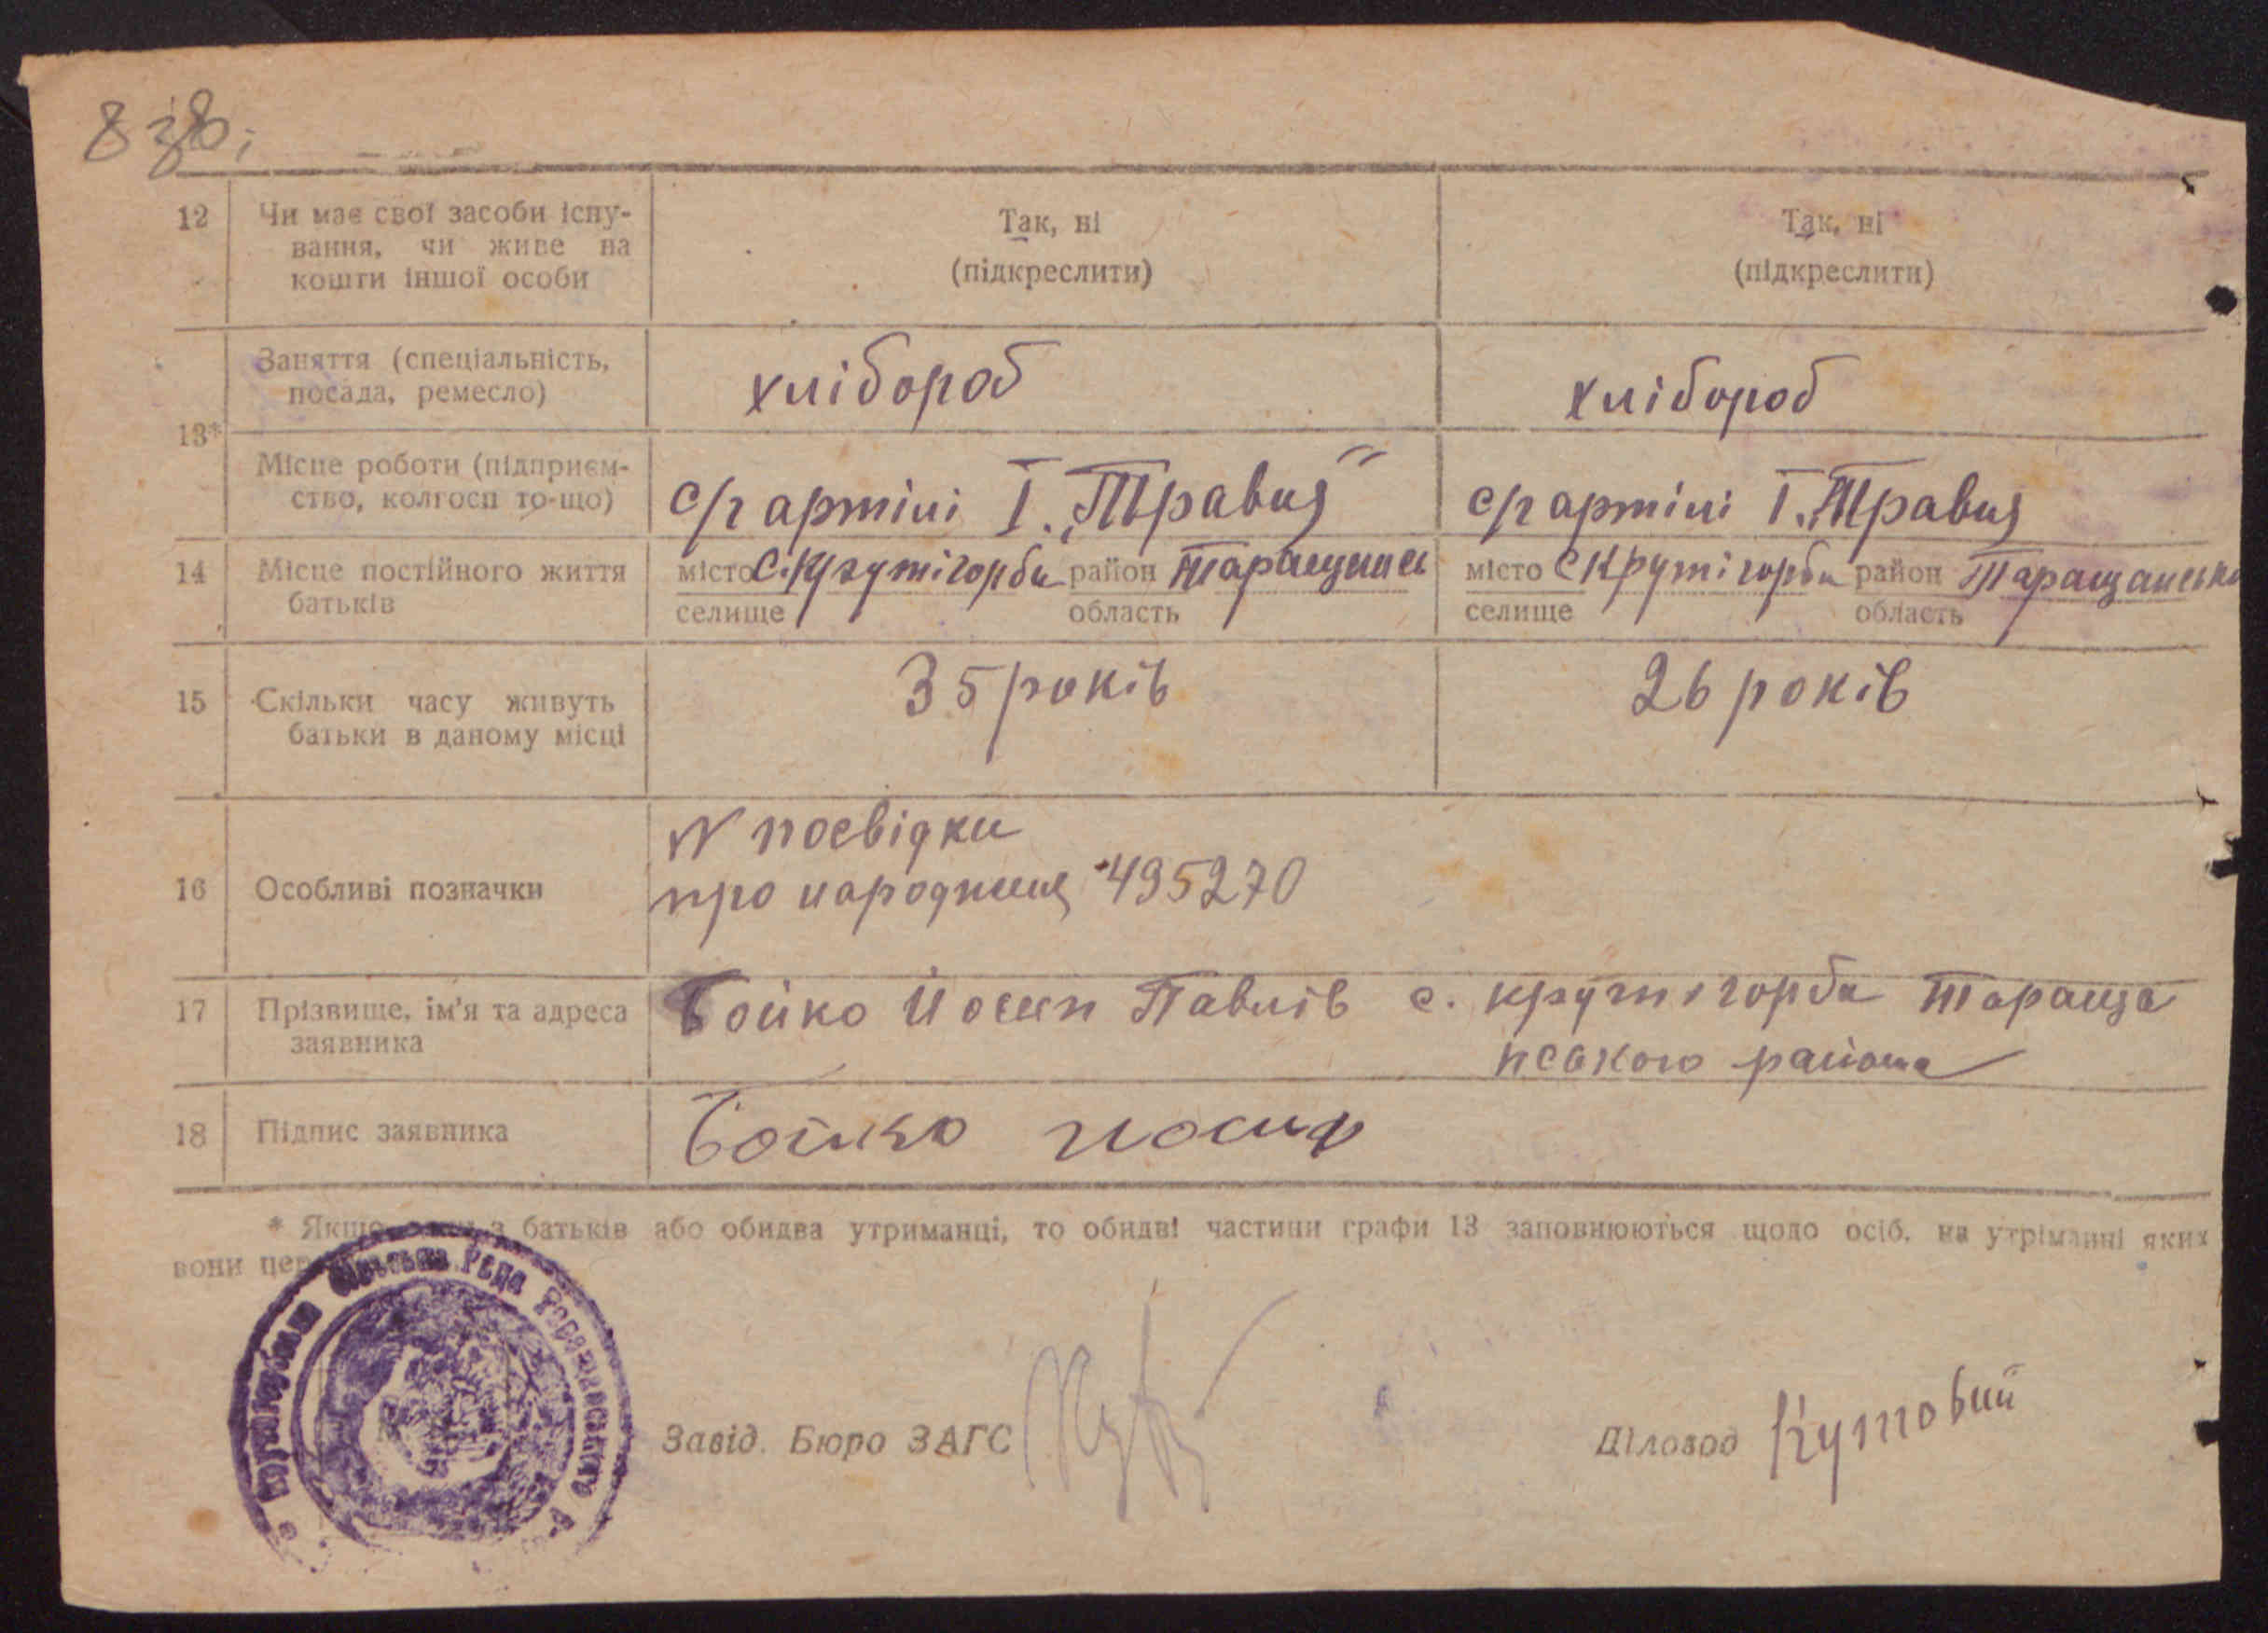 8 зв.
12 Чи має свої засоби існу-
вання, чи живе на
кошти іншої особи
Так, ні
(підкреслити)
Так, ні
(підкреслити)
13*
Заняття (спеціальність,
посада, ремесло)
хлібороб
хлібороб
Місце роботи (підприєм-
ство, колгосп то-що)
с/г артілі І. „Травня"
с/г артілі І. „Травня
14 Місце постійного життя
батьків
місто С. Крутігорби район Таращанс
селище область
місто С Крутігорби район Таращансько
селище область
15 Скільки часу живуть
батьки в даному місці
35 років
26 років
16 Особливі позначки
N посвідки
про народження 495270
17 Прізвище, ім'я та адреса
заявника
Бойко Йосип Павлів с. Крутігорби Тараща
нського района
18 Підпис заявника
Бойко Йосип
* Якщо з батьків або обидва утриманці, то обидві частини графи 13 заповнюються щодо осіб, на утріманні яких
вони
Рада Таращанського Р.
Завід. Бюро ЗАГС
Діловод Кутовий